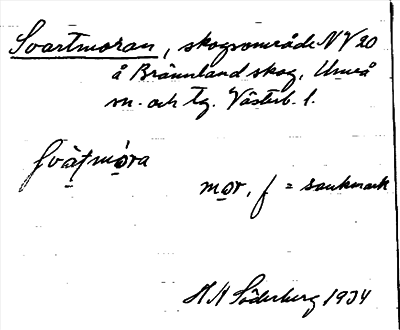 Svartmoran, skogsområde NV 20
å Brännland skog, Umeå
sn. och tg. Västerb. l.
svàṭmo̱ra
mo̱r, f = sankmark
H H Söderberg 1934